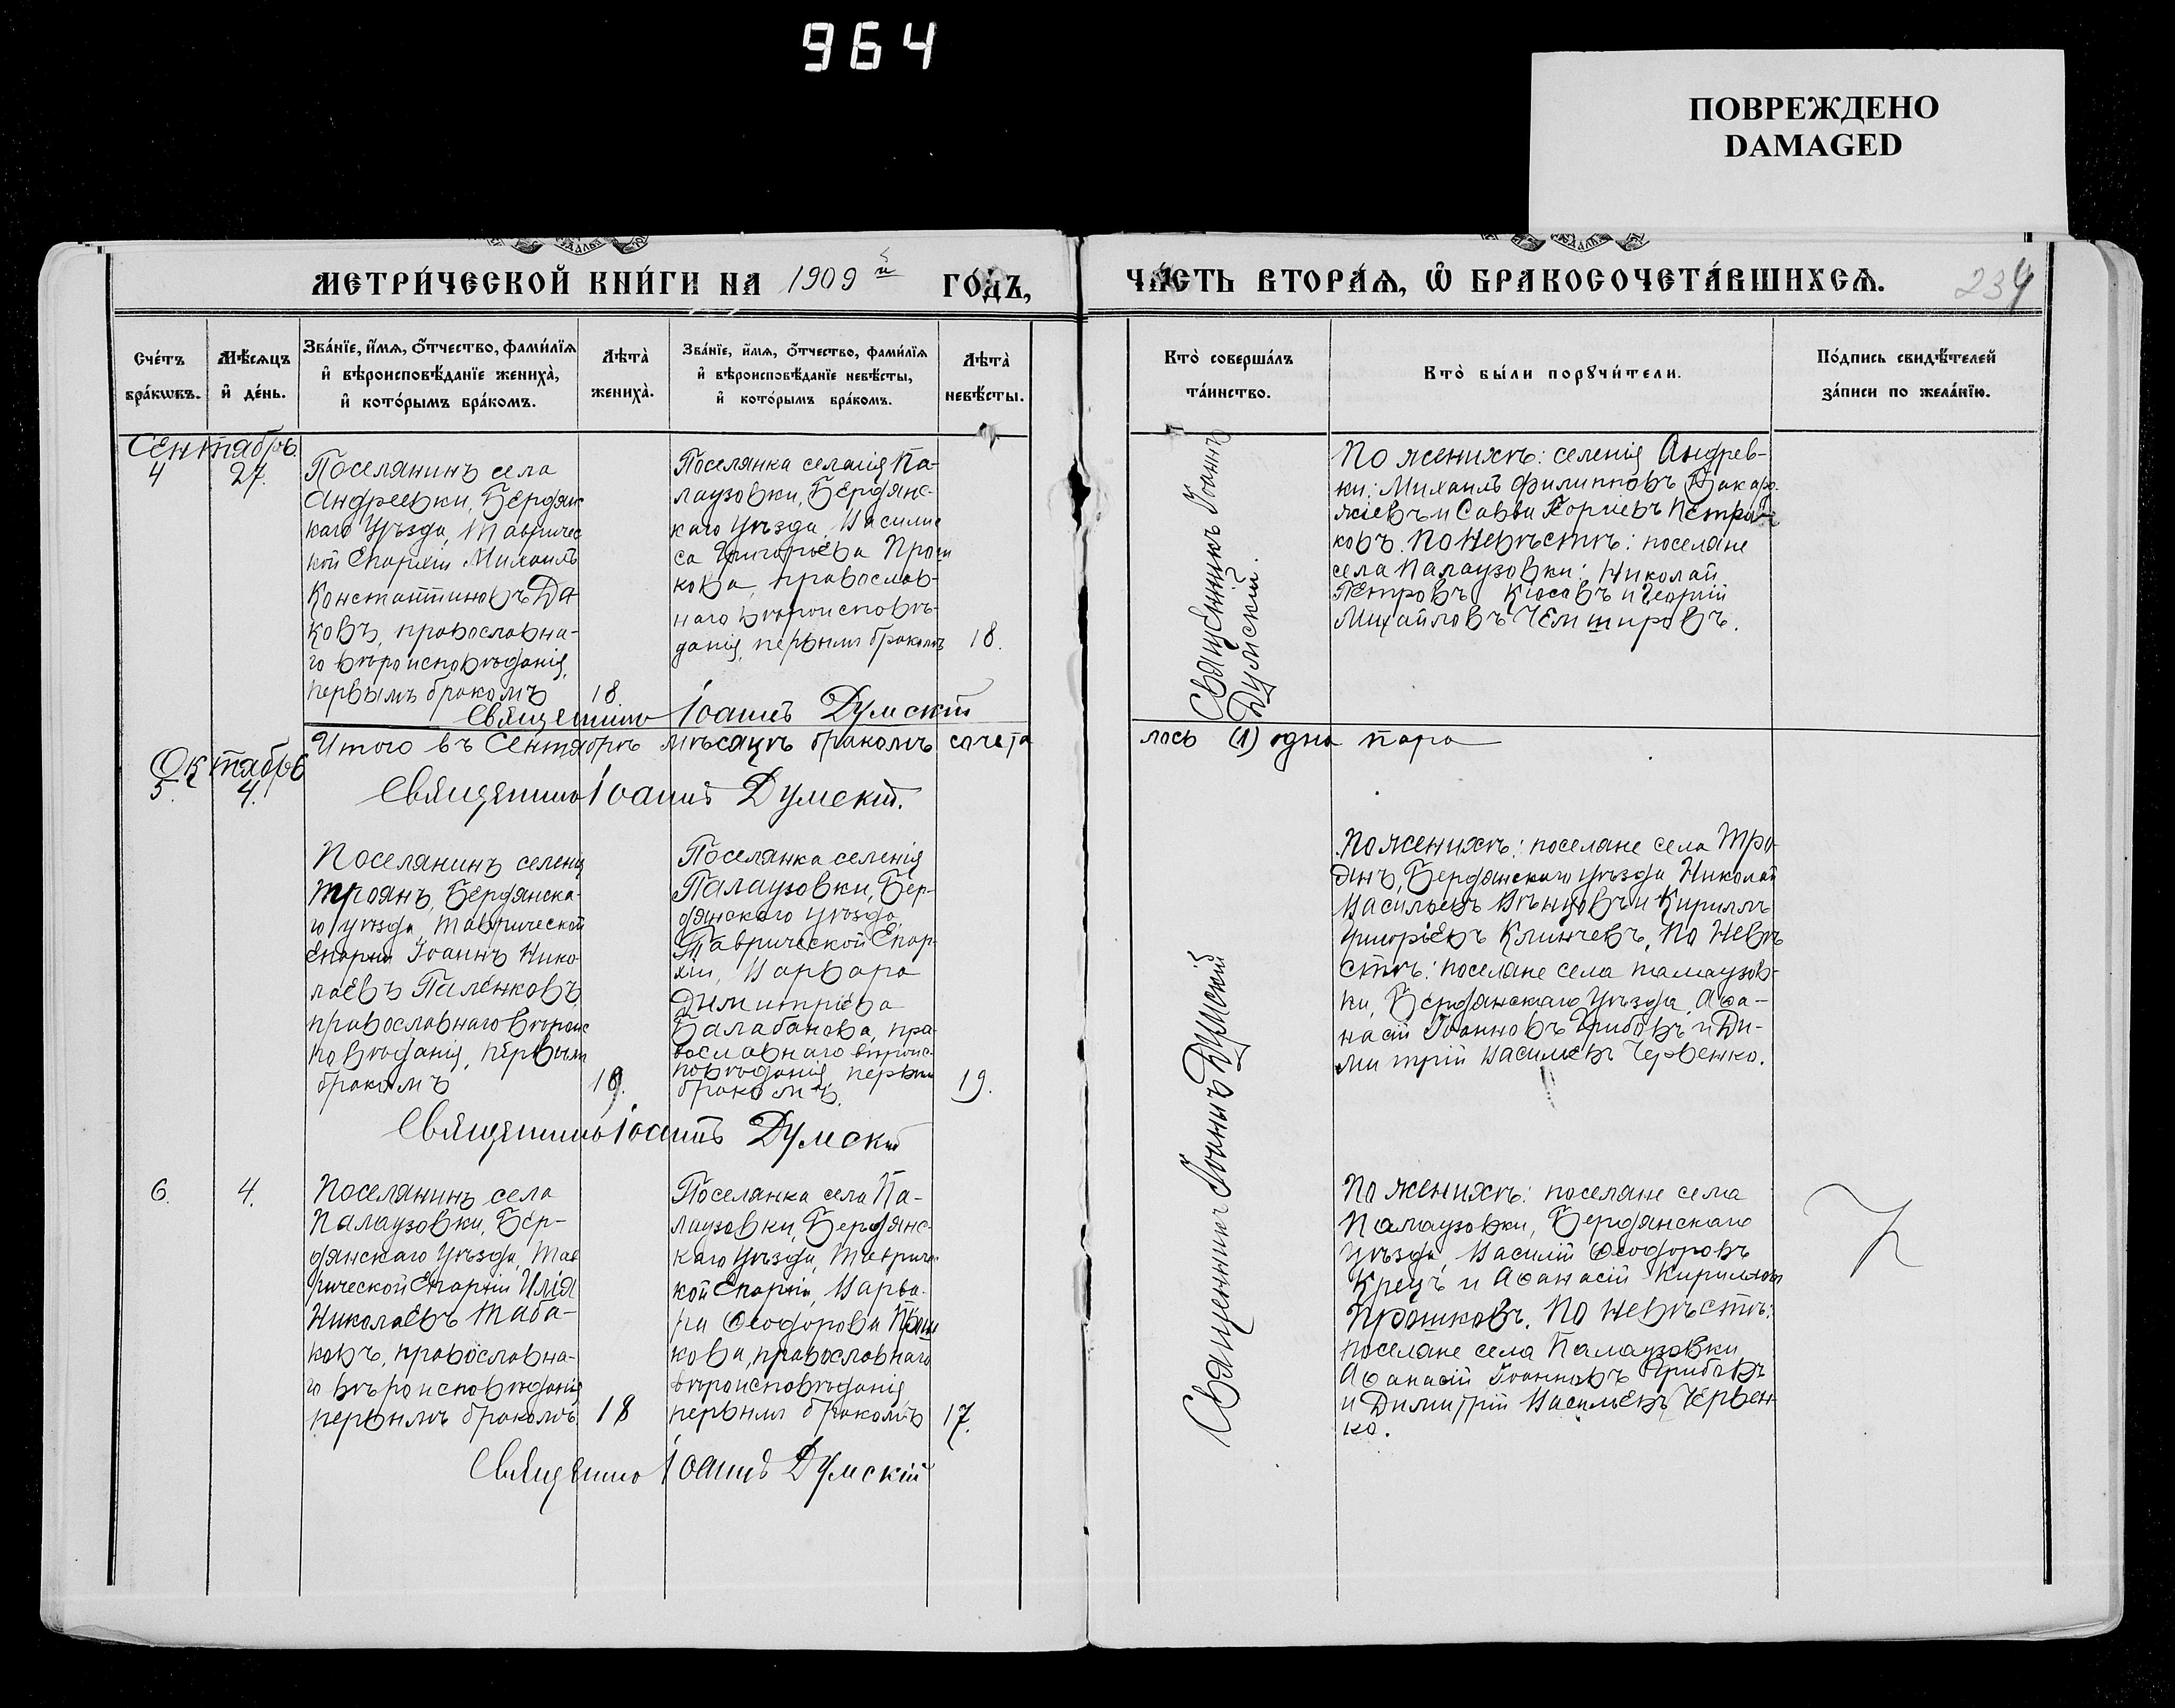 964
ПОВРЕЖДЕНО
DAMAGED
МЕТРИ́ЧЕСКОЙ КНИ́ГИ НА 1909 й ГО́ДЪ,
ЧА́СТЬ ВТОРА́Ѧ, Ѽ БРАКОСОЧЕТА́ВШИХСѦ.
234
Сче́тъ
бра́кѡвъ.
Мѣ́сѧцъ
и҆ де́нь.
Зва́нїе, и҆́мѧ, ѻ҆́тчество, фами́лїѧ
и҆ вѣроисповѣ́данїе жениха̀,
и҆ кото́рымъ бра́комъ.
Лѣ́та̀
жениха̀.
Зва́нїе, и҆́мѧ, ѻ҆́тчество, фами́лїѧ
и҆ вѣроисповѣ́данїе невѣ́сты,
и҆ кото́рымъ бра́комъ.
Лѣ́та̀
невѣ́сты.
Кто̀ соверша́лъ
та́инство.
Кто̀ бы́ли порꙋчи́тели.
По́дпись свидѣ́телей
за́писи по жела́нїю.
Сентябрь
4
27.
Поселянинъ села
Андреевки, Бердянс
каго уѣзда, Тавричес
кой Епархіи Михаилъ
Константиновъ Да
ковъ, православна-
го вѣроисповѣданія,
первымъ бракомъ
18.
Поселянка селенія Па-
лаузовки, Бердянс-
каго уѣзда, Василис
са Григорьева Прош
кова, православ-
наго вѣроисповѣ-
данія, первымъ бракомъ
18.
Священникъ Іоаннъ
Думскій.
По женихѣ: селенія Андрев-
ки: Михаилъ Филипповъ
и Савва
ковъ. По невѣстѣ: поселяне
села Палаузовки: Николай
Петровъ Кюсевъ и Георгій
Михайловъ Чемшировъ.
Священникъ Іоаннъ Думскій
Итого въ Сентябрѣ мѣсяцѣ бракомъ сочета
лось (1) одна пара
Октябрь
5.
4.
Священникъ Іоаннъ Думскій.
Поселянинъ селенія
Троянъ, Бердянска-
го уѣзда, Таврической
Епархіи Іоаннъ Нико
лаевъ Паленковъ,
православнаго вѣроис
повѣданія, первымъ
бракомъ
19.
Поселянка селенія
Палаузовки, Бер-
дянскаго уѣзда,
Таврической Епар-
хіи, Варвара
Димитріева
Балабанова, пра-
вославнаго вѣроис-
повѣданія, первымъ
бракомъ.
19.
Священникъ Іоаннъ Думскій
По женихѣ: поселяне села Тро-
янъ, Бердянскаго уѣзда Николай
Васильевъ Вѣнцовъ и Кириллъ
Григоріевъ Клинчевъ, По невѣ
стѣ: поселяне села Палаузов-
ки, Бердянскаго уѣзда, Аѳа-
насій Іоанновъ Грибовъ и Ди-
митрій Васильевъ Червенко.
Священникъ Іоаннъ Думскій
6.
4.
Поселянинъ села
Палаузовки, Бер-
дянскаго уѣзда, Тав
рической Епархіи Илія
Николаевъ Таба-
ковъ, православна-
го вѣроисповѣданія
первымъ бракомъ.
18
Поселянка села Па-
лаузовки, Бердянс-
каго уѣзда, Тавричес
кой Епархіи, Варва-
ра Ѳеодорова Прош
кова, православнаго
вѣроисповѣданія
первымъ бракомъ
17.
По женихѣ: поселяне села
Палаузовки, Бердянскаго
уѣзда, Василій Ѳеодоровъ
Крецъ и Аѳанасій Кирилловъ
Прошковъ. По невѣстѣ:
поселяне села Палаузовки
Аѳанасій Іоанновъ Грибовъ
и Димитрій Васильевъ Червен-
ко.
Священникъ Іоаннъ Думскій